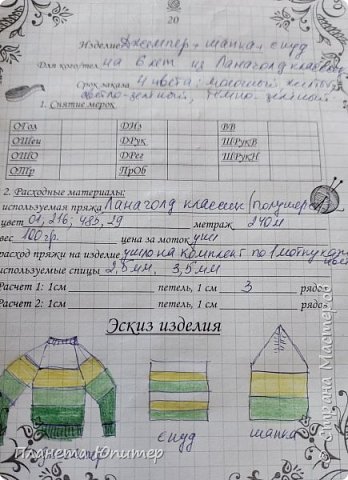 20
Изделие Джемпер + шапка + снуд
Для кого/чего на 6 лет из Ланаголд классик
Срок заказа 4 цвета: молочный, желтый
светло-зеленый, темно-зеленый
1. Снятие мерок
ОГол ДИз ВВ
ОШеи ДРук ШРукВ
ДРег ШРукН
ОТр ПрОб
2. Расходные материалы:
используемая пряжа Ланаголд классик (полушерсть
цвет 01, 216, 485, 29 метраж 240м
вес 100гр. цена за моток
расход пряжи на изделие ушло на комплект по 1 мотку кажд
цвета
используемые спицы 2,5мм, 3,5мм
Расчет 1: 1см петель, 1 см 3 рядо
Расчет 2: 1см петель, 1 см рядо
Эскиз изделия
джемпер снуд шапка
Планета Юпитер
Страна Мастеров